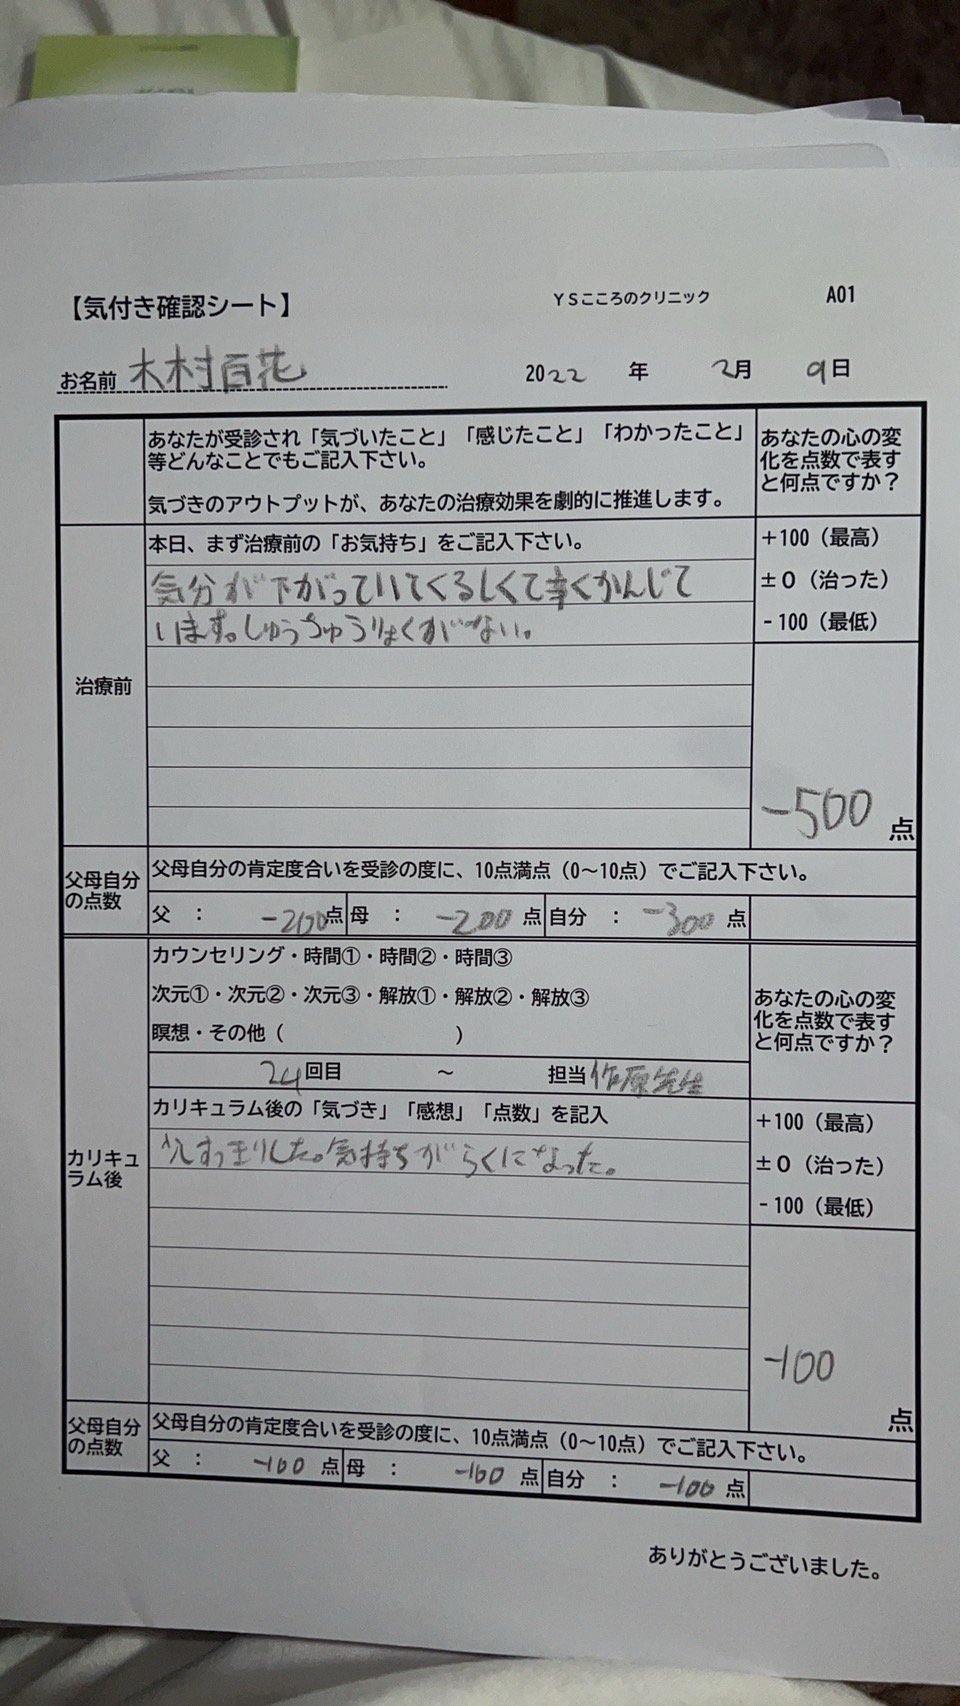 【気付き確認シート】 YSこころのクリニック A01
お名前 木村百花 2022 年 2月 9日
あなたが受診され「気づいたこと」「感じたこと」「わかったこと」
等どんなことでもご記入下さい。
気づきのアウトプットが、あなたの治療効果を劇的に推進します。
あなたの心の変
化を点数で表す
と何点ですか？
治療前
本日、まず治療前の「お気持ち」をご記入下さい。
気分が下がっていてくるしくて辛くかんじて
います。しゅうちゅうりょくがない。
+100（最高）
±0（治った）
-100（最低）
-500 点
父母自分
の点数
父母自分の肯定度合いを受診の度に、10点満点（0～10点）でご記入下さい。
父 ： -200点 母 ： -200 点 自分 ： -300 点
カリキュ
ラム後
カウンセリング・時間①・時間②・時間③
次元①・次元②・次元③・解放①・解放②・解放③
瞑想・その他（ ）
24回目 ～ 担当 作原先生
あなたの心の変
化を点数で表す
と何点ですか？
カリキュラム後の「気づき」「感想」「点数」を記入
すっきりした。気持ちがらくになった。
+100（最高）
±0（治った）
-100（最低）
-100
点
父母自分
の点数
父母自分の肯定度合いを受診の度に、10点満点（0～10点）でご記入下さい。
父 ： -100 点 母 ： -100 点 自分 ： -100 点
ありがとうございました。